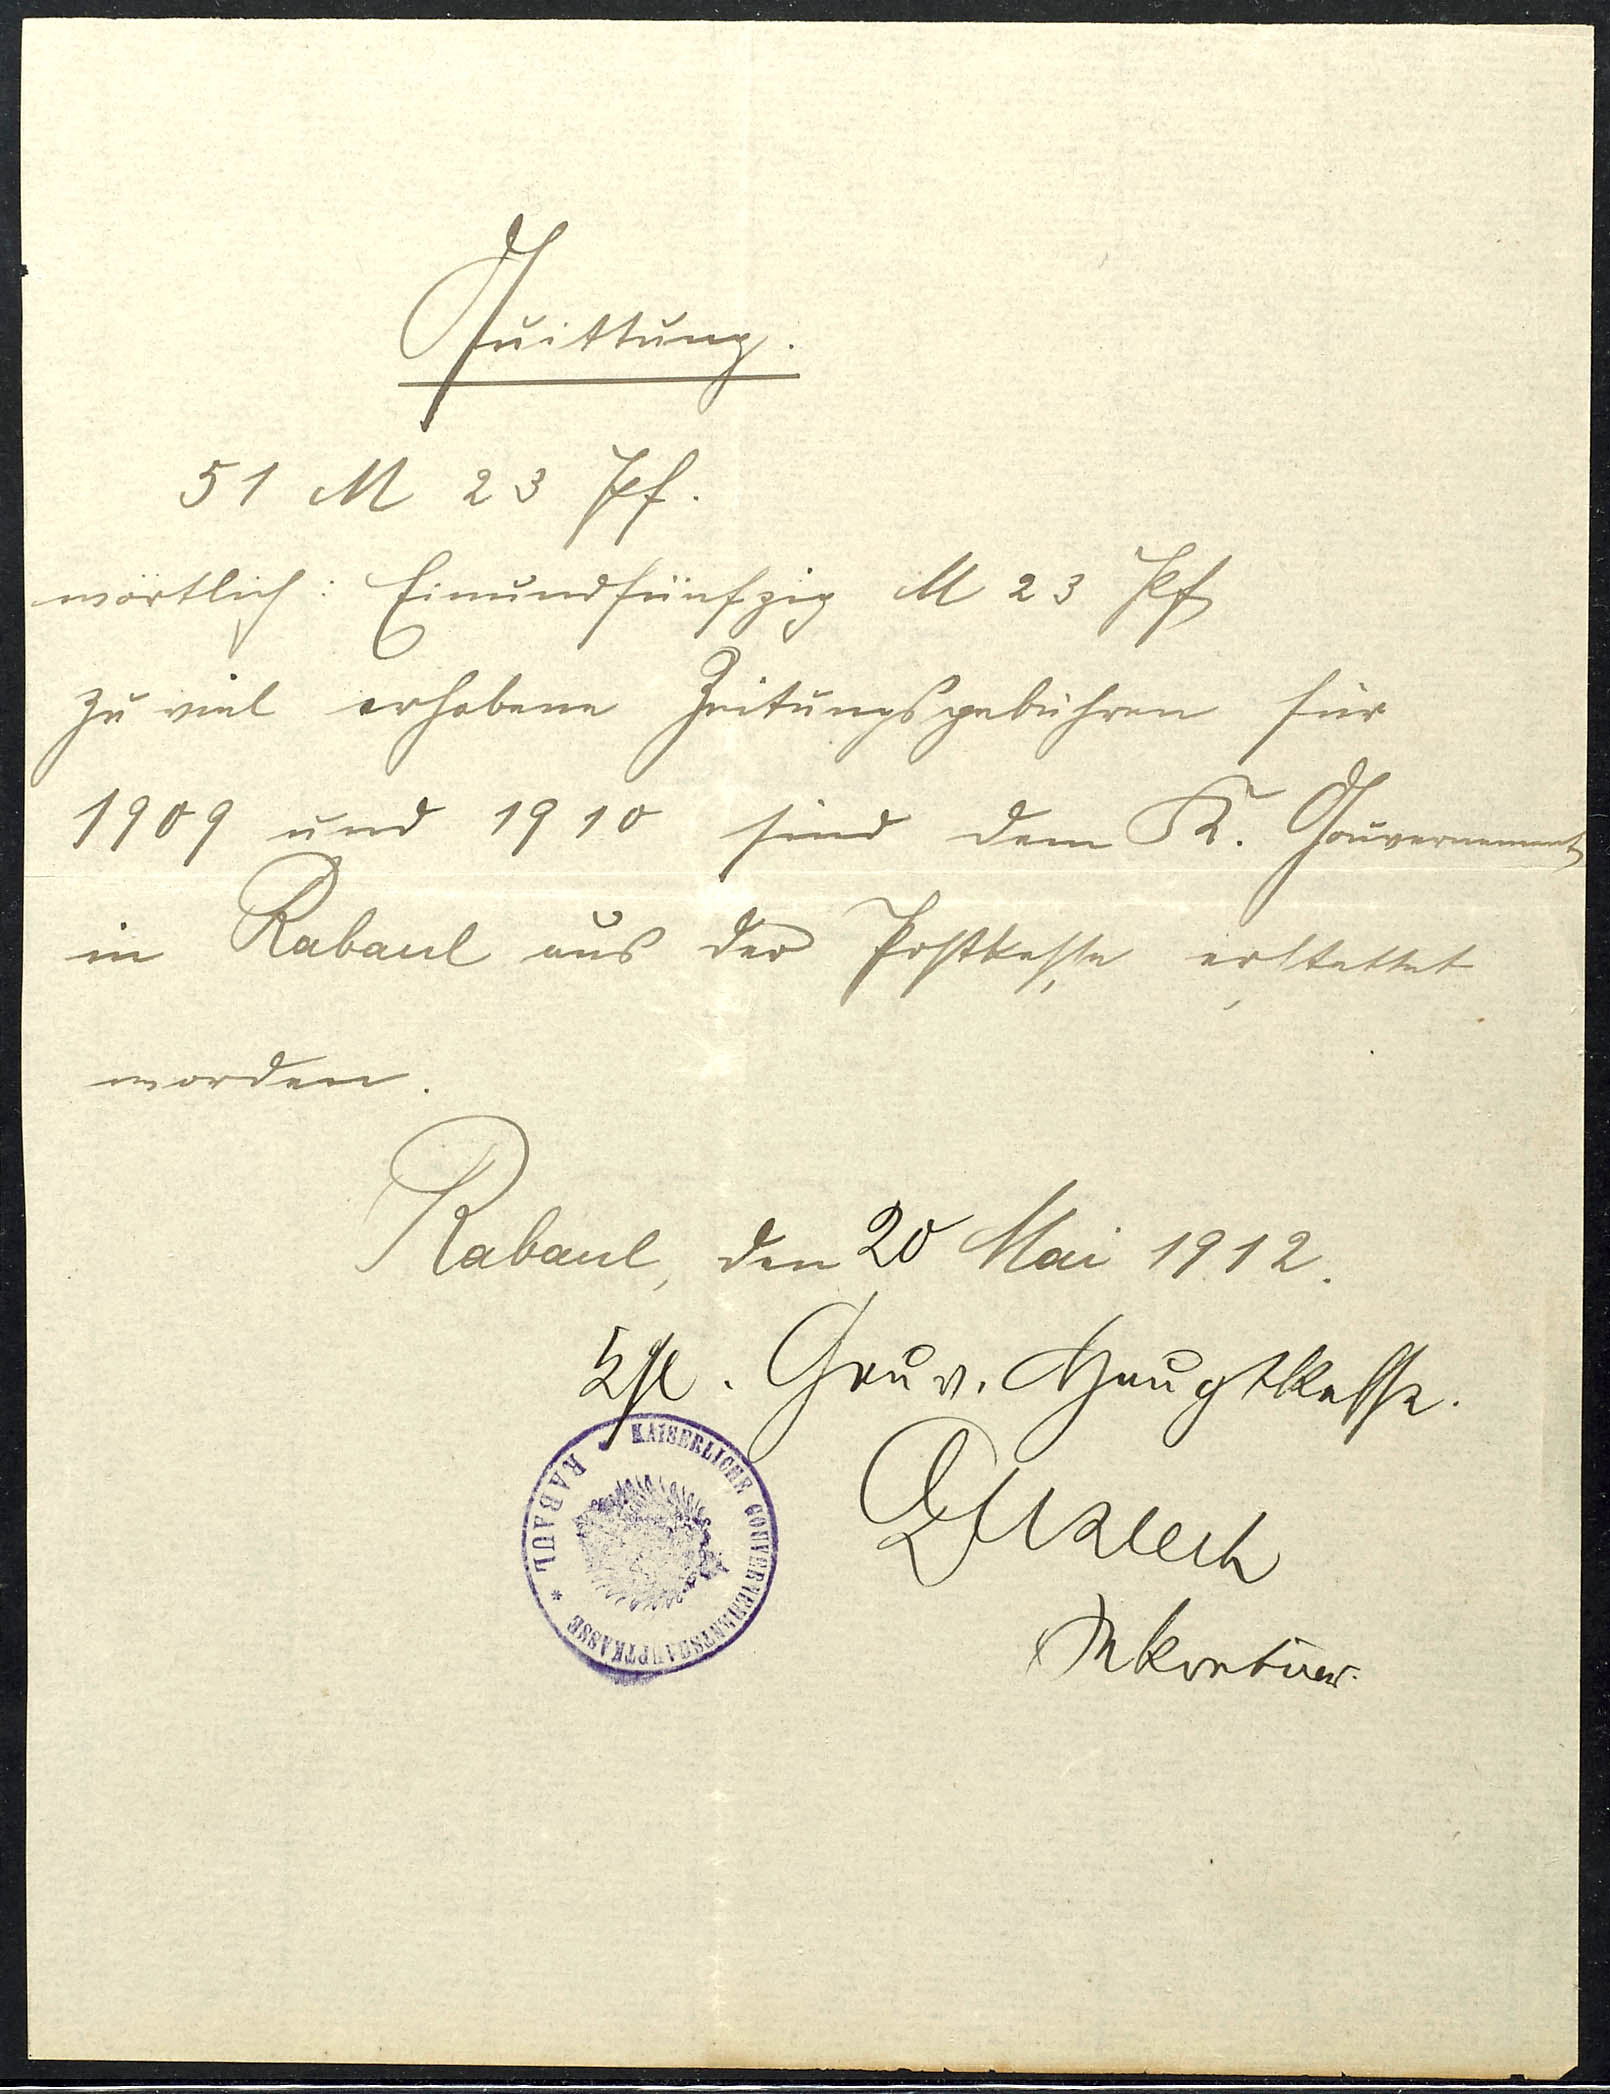 Quittung.
51 M 23 Pf.
wörtlich: Einundfünfzig M 23 Pf
zu viel erhobene Zeitungsgebühren für
1909 und 1910 sind dem K. Gouvernement
in Rabaul aus der Postkasse erstattet
worden.
Rabaul, den 20 Mai 1912.
Ksl. Gouv. Hauptkasse.
KAISERLICHE GOUVERNEMENTSHAUPTKASSE
* RABAUL